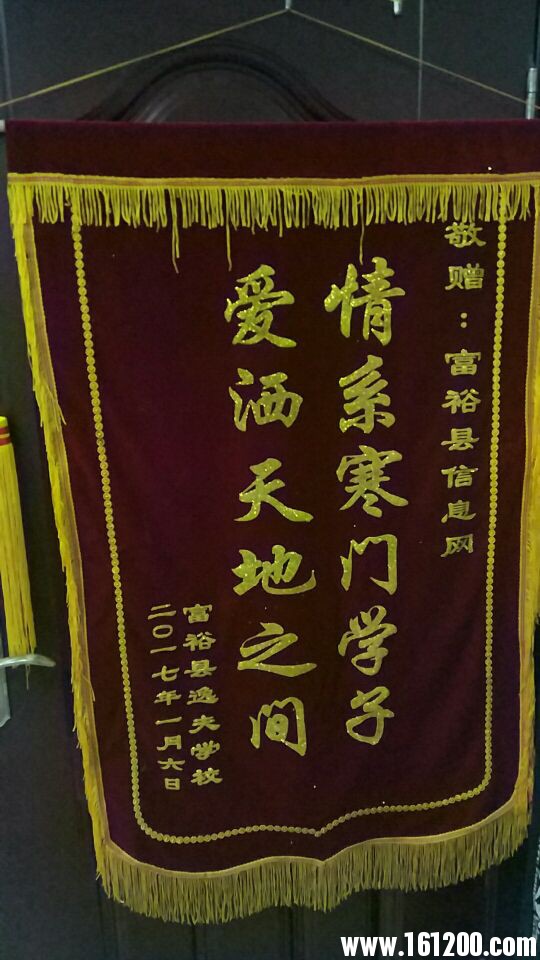 敬赠：富裕县信息网
情系寒门学子
爱洒天地之间
富裕县逸夫学校
二〇一七年一月六日
www.161200.com